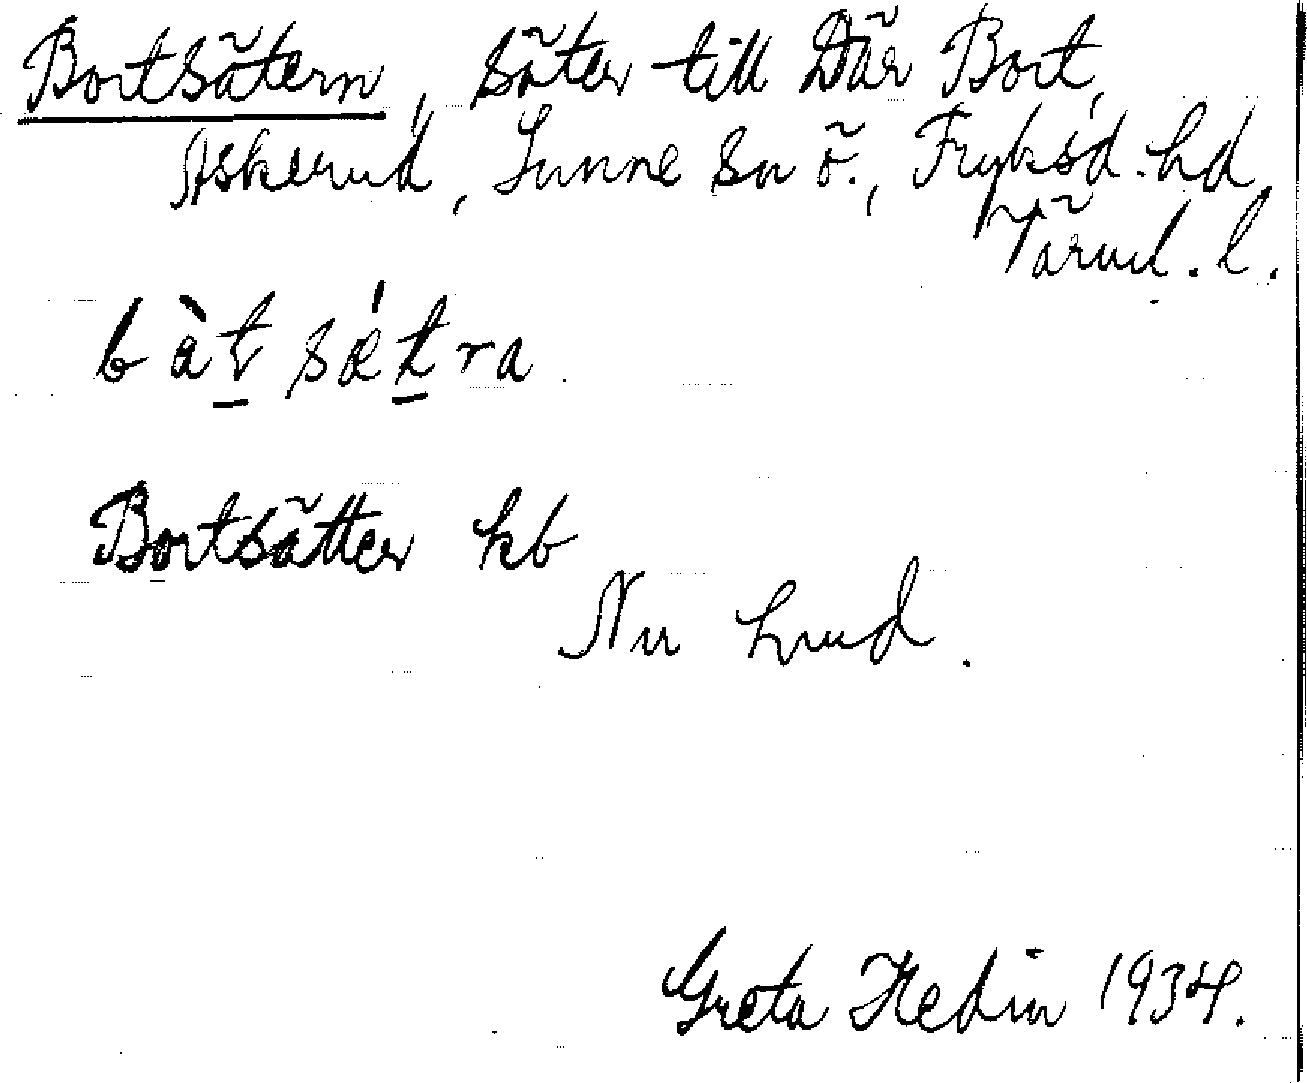 Bortsätern, Säter till Där Bort,
Askerud, Sunne Sn ö., Fryksd. hd,
Värml. l.
bàt sǽtra
Bortsätter kb
Nu hmd.
Greta Hedin 1934.